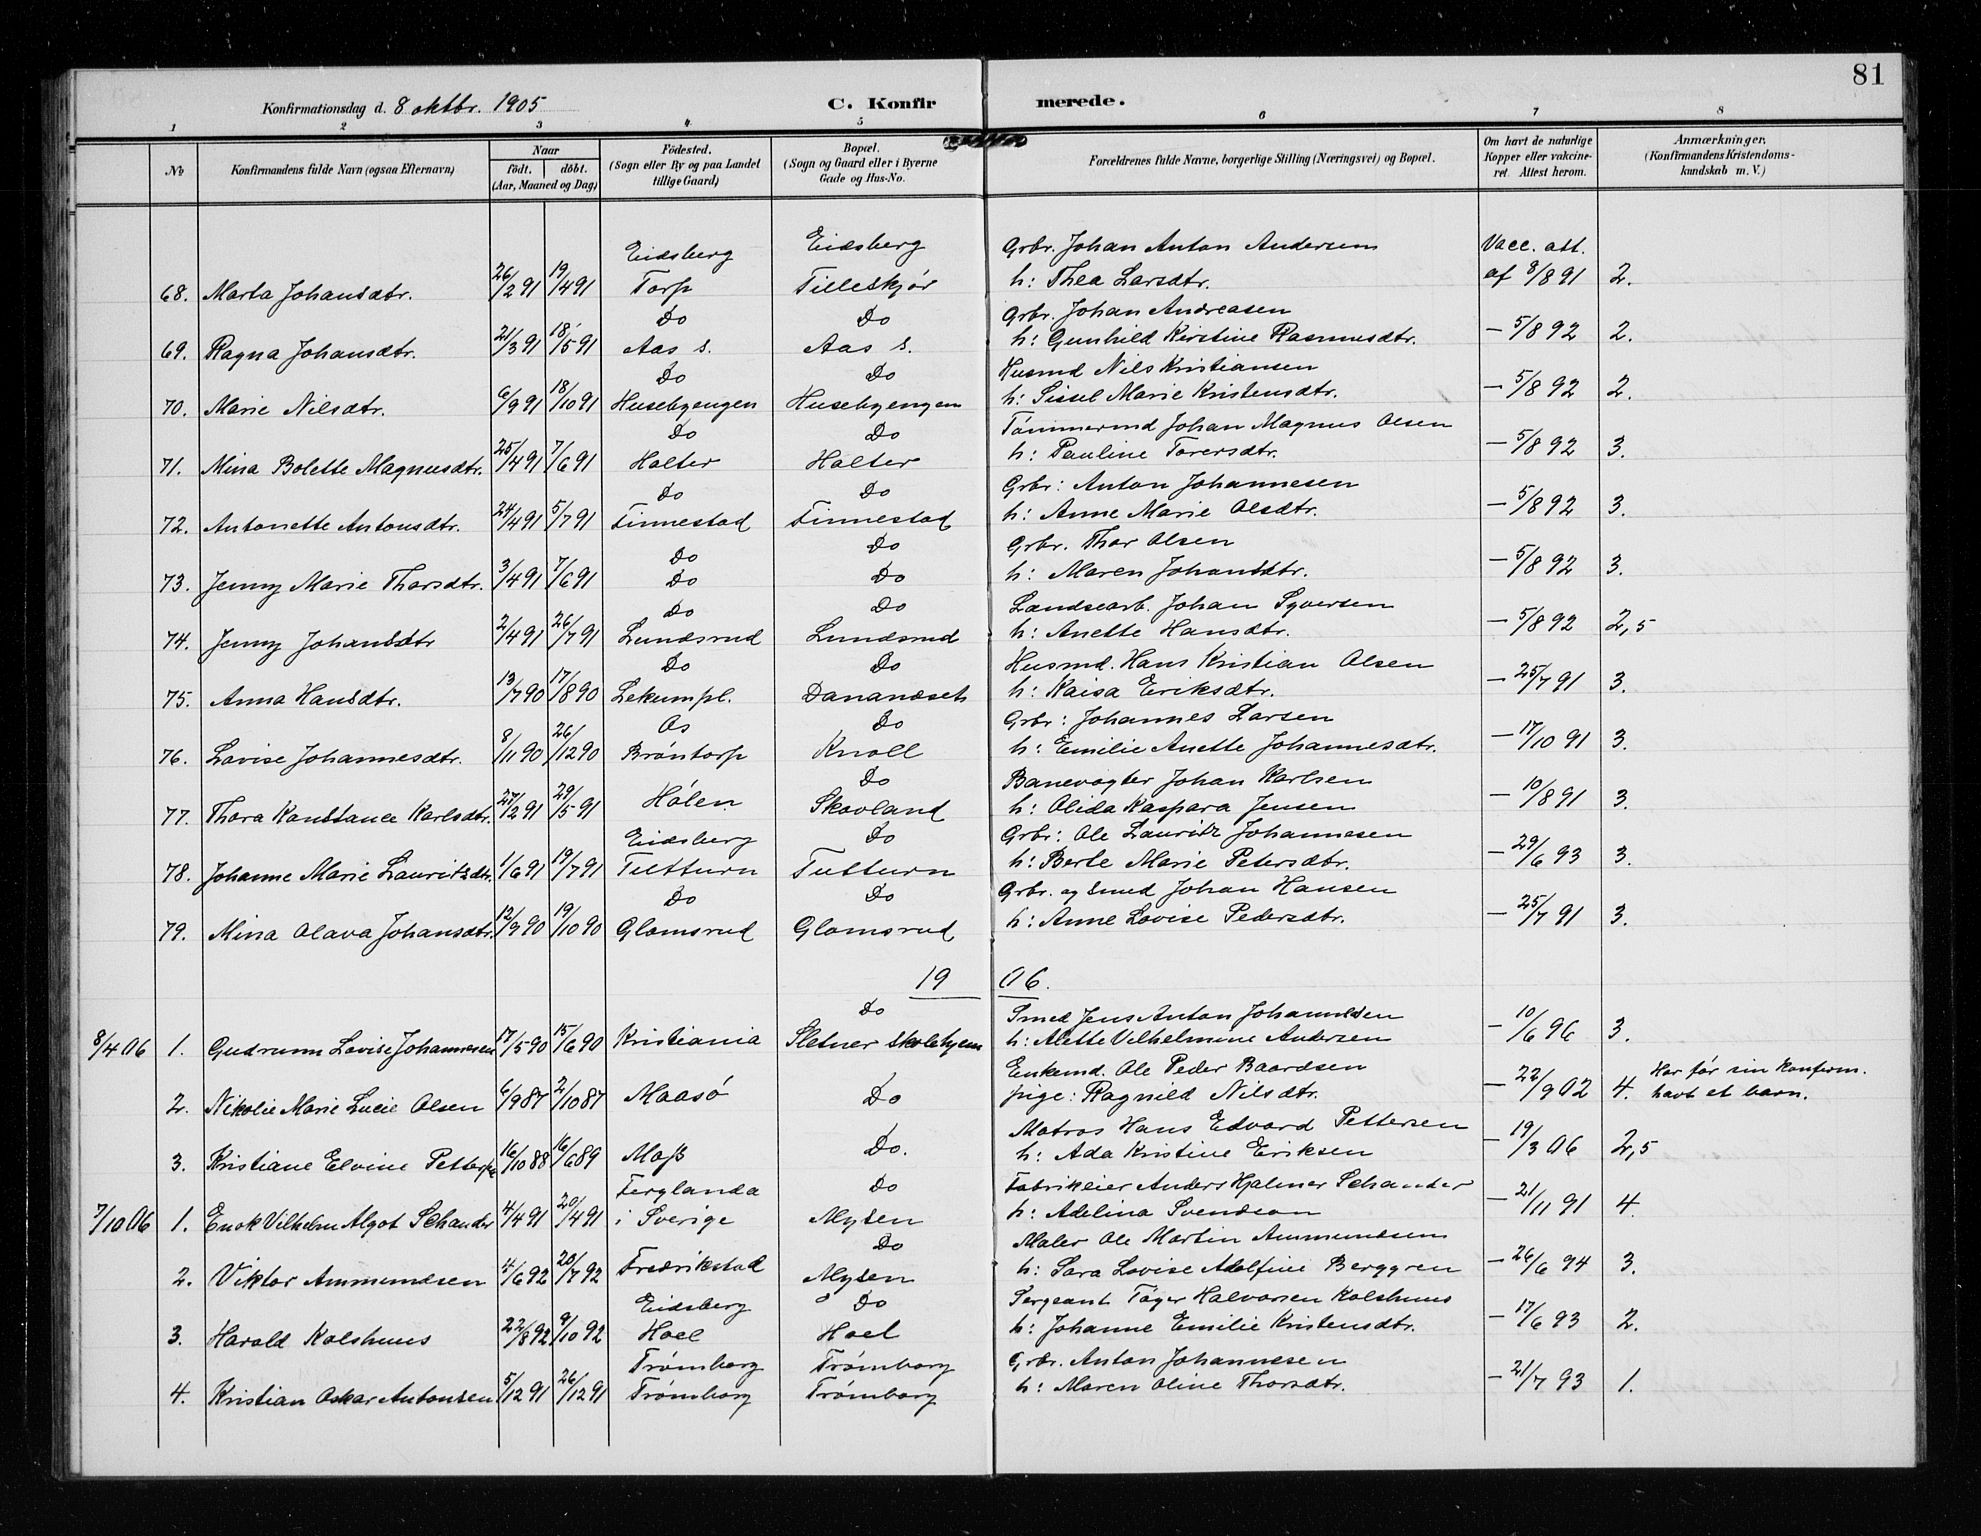 81
Konfirmationsdag d. 8 oktbr. 1905 C. Konfirmerede.
1 2 3 4 5 6 7 8
No Konfirmandens fulde Navn (ogsaa Efternavn) Naar født. døbt. (Aar, Maaned og Dag) Födested. (Sogn eller By og paa Landet tillige Gaard) Bopæl. (Sogn og Gaard eller i Byerne Gade og Hus-No. Forældrenes fulde Navne, borgerlige Stilling (Næringsvei) og Bopæl. Om havt de naturlige Kopper eller vakcineret. Attest herom. Anmærkninger. (Konfirmandens Kristendomskundskab m. V.)
Eidsberg Eidsberg Grbr. Johan Anton Andersen Vacc. att.
68. Marta Johansdtr. 26/2 91 19/4 91 Torp Tilleskjør h: Thea Larsdtr. af 8/8 91 2.
Do Do Grbr. Johan Andreasen
69. Ragna Johansdtr. 21/3 91 18/5 91 Aas s. Aas s. h: Gunhild Kirstine Rasmusdtr. — 5/8 92 2.
Do Do Husmd Nils Kristiansen
70. Marie Nilsdtr. 6/9 91 18/10 91 Husebyengen Husebyengen h: Sissel Marie Kristensdtr. — 5/8 92 2.
Do Do Tømmermd Johan Magnus Olsen
71. Mina Bolette Magnusdtr. 25/4 91 7/6 91 Halter Halter h: Pauline Torersdtr. — 5/8 92 3.
Do Do Grbr: Anton Johannesen
72. Antonette Antonsdtr. 24/4 91 5/7 91 Finnestad Finnestad h: Anne Marie Olsdtr. — 5/8 92 3.
Do Do Grbr. Thor Olsen
73. Jenny Marie Thorsdtr. 3/4 91 7/6 91 Do Do h: Maren Johansdtr. — 5/8 92 3.
Do Do Landsearb. Johan Syversen
74. Jenny Johansdtr 2/4 91 26/7 91 Lundsrud Lundsrud h: Anette Hansdtr. — 5/8 92 2,5
Do Do Husmd. Hans Kristian Olsen
75. Anna Hansdtr. 13/7 90 17/8 90 Lekumpl. Dananæset h: Kaisa Eriksdtr. — 25/7 91 3.
As Do Grbr: Johannes Larsen
76. Lovise Johannesdtr. 8/11 90 26/12 90 Brøntorp Knoll h: Emilie Anette Johannesdtr. — 17/10 91 3.
Do Banevogter Johan Karlsen
77. Thora Konstance Karlsdtr. 27/2 91 29/5 91 Hölen Skovland h: Olida Kaspara Jensen — 10/8 91 3.
Eidsberg Do Grbr: Ole Lauritz Johannesen
78. Johanne Marie Lauritzdtr. 1/6 91 19/7 91 Tutturn Tutturn h: Berte Marie Petersdtr. — 29/6 93 3.
Do Do Grbr. og smed Johan Hansen
79. Mina Olava Johansdtr. 12/9 90 19/10 90 Glomsrud Glomsrud h: Anne Lovise Pedersdtr. — 25/7 91 3.
19 06.
Do Smed Jens Anton Johannesen
8/4 06 1. Gudrunn Lovise Johannesen 17/5 90 15/6 90 Kristiania Sletner skolehjem h: Alette Vilhelmine Andersen — 10/6 96 3.
Enkemd. Ole Peder Baardsen Har før sin konfirm.
2. Nikolie Marie Lucie Olsen 6/9 87 2/10 87 Maasø Do pige: Ragnild Nilsdtr. — 22/9 02 4. havt et barn.
Matros Hans Edvard Pettersen
3. Kristiane Elvine Petters 16/10 88 16/6 89 Moss Do. h: Ada Kristine Eriksen — 19/3 06 2,5
Ferglanda Do Fabrikeier Anders Hjalmer Schander
7/10 06 1. Enok Vilhelm Algot Schander 4/4 91 20/4 91 i Sverige Mysen h: Adelina Svendson — 21/11 91 4.
Do Maler Ole Martin Ammundsen
2. Viktor Ammundsen 4/6 92 20/7 92 Fredrikstad Mysen h: Sara Lovise Adolfine Berggren — 26/6 94 3.
Eidsberg Do Sergeant Tøger Halvorsen Kolshuus
3. Harald Kolshuus 22/8 92 9/10 92 Hoel Hoel h: Johanne Emilie Kristensdtr. — 17/6 93 2.
Trømborg Trømborg Grbr. Anton Johannesen
4. Kristian Oskar Antonsen 5/12 91 26/12 91 Trømborg Trømborg h: Maren Oline Thorsdtr. — 21/7 93 1.